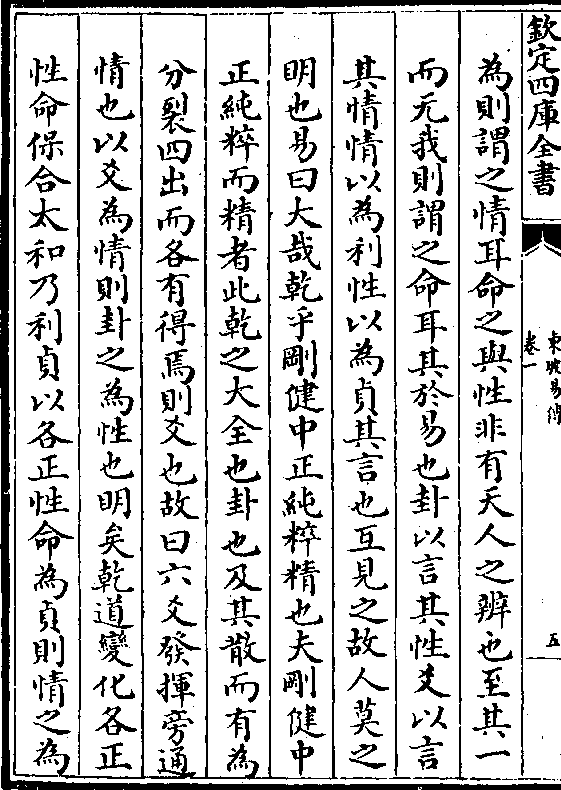 欽定四庫全書
東坡易傳
卷一
五
為則謂之情耳命之與性非有天人之辨也至其一
而无我則謂之命耳其於易也卦以言其性爻以言
其情情以為利性以為貞其言也互見之故人莫之
明也易曰大哉乾乎剛健中正純粹精也夫剛健中
正純粹而精者此乾之大全也卦也及其散而有為
分裂四出而各有得焉則爻也故曰六爻發揮旁通
情也以爻為情則卦之為性也明矣乾道變化各正
性命保合太和乃利貞以各正性命為貞則情之為